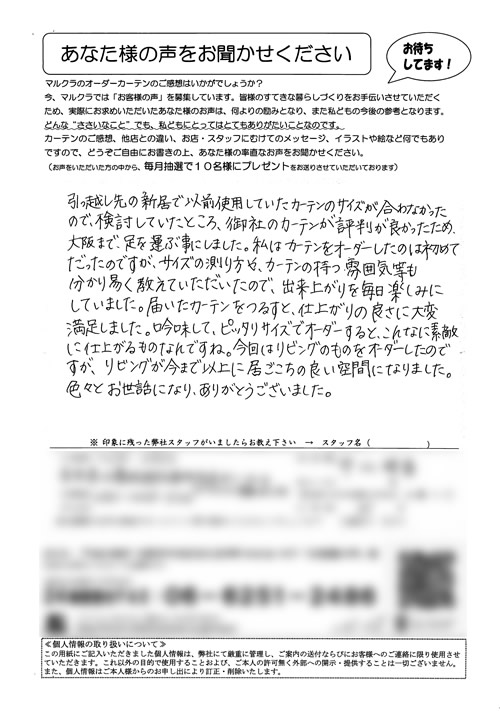 あなた様の声をお聞かせください
お待ち
してます！
マルクラのオーダーカーテンのご感想はいかがでしょうか？
今、マルクラでは「お客様の声」を募集しています。皆様のすてきな暮らしづくりをお手伝いさせていただく
ため、実際にお求めいただいたあなた様のお声は、何よりの励みとなり、また私どもの今後の参考となります。
どんな“ささいなこと”でも、私どもにとってはとてもありがたいことなのです。
カーテンのご感想、他店との違い、お店・スタッフにむけてのメッセージ、イラストや絵など何でもあり
ですので、どうぞご自由にお書きの上、あなた様の率直なお声をお聞かせください。
（お声をいただいた方の中から、毎月抽選で１０名様にプレゼントをお送りさせていただいております）
引っ越し先の新居で以前使用していたカーテンのサイズが合わなかった
ので、検討していたところ、御社のカーテンが評判が良かったため、
大阪まで、足を運ぶ事にしました。私はカーテンをオーダーしたのは初めて
だったのですが、サイズの測り方や、カーテンの持つ雰囲気等も
分かり易く教えていただいたので、出来上がりを毎日楽しみに
していました。届いたカーテンをつるすと、仕上がりの良さに大変
満足しました。吟味して、ピッタリサイズでオーダーすると、こんなに素敵
に仕上がるものなんですね。今回はリビングのものをオーダーしたので
すが、リビングが今まで以上に居ごこちの良い空間になりました。
色々とお世話になり、ありがとうございました。
※ 印象に残った弊社スタッフがいましたらお教え下さい → スタッフ名（ ）
≪個人情報の取り扱いについて≫
この用紙にご記入いただきました個人情報は、弊社にて厳重に管理し、ご案内の送付ならびにお客様へのご連絡に限り使用させ
ていただきます。これ以外の目的で使用することおよび、ご本人の許可無く外部への開示・提供することは一切ございません。
また、個人情報はご本人様からのお申し出により訂正・削除いたします。